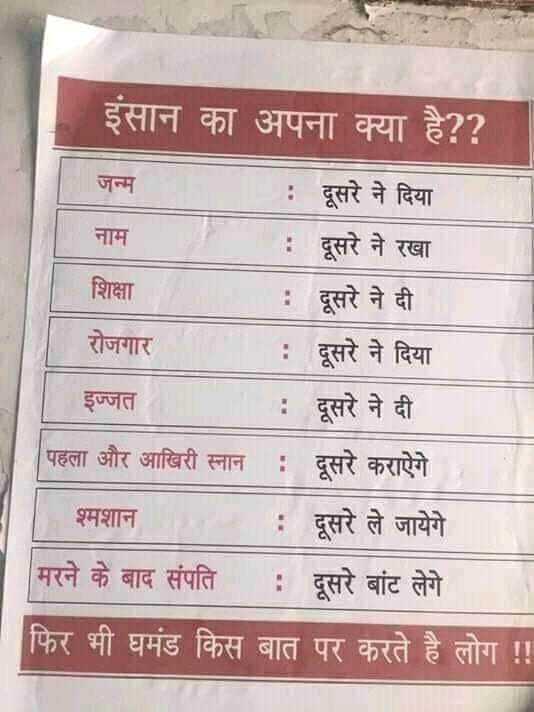 इंसान का अपना क्या है??
जन्म : दूसरे ने दिया
नाम : दूसरे ने रखा
शिक्षा : दूसरे ने दी
रोजगार : दूसरे ने दिया
इज्जत : दूसरे ने दी
पहला और आखिरी स्नान : दूसरे कराऐगे
श्मशान : दूसरे ले जायेगे
मरने के बाद संपति : दूसरे बांट लेगे
फिर भी घमंड किस बात पर करते है लोग !!